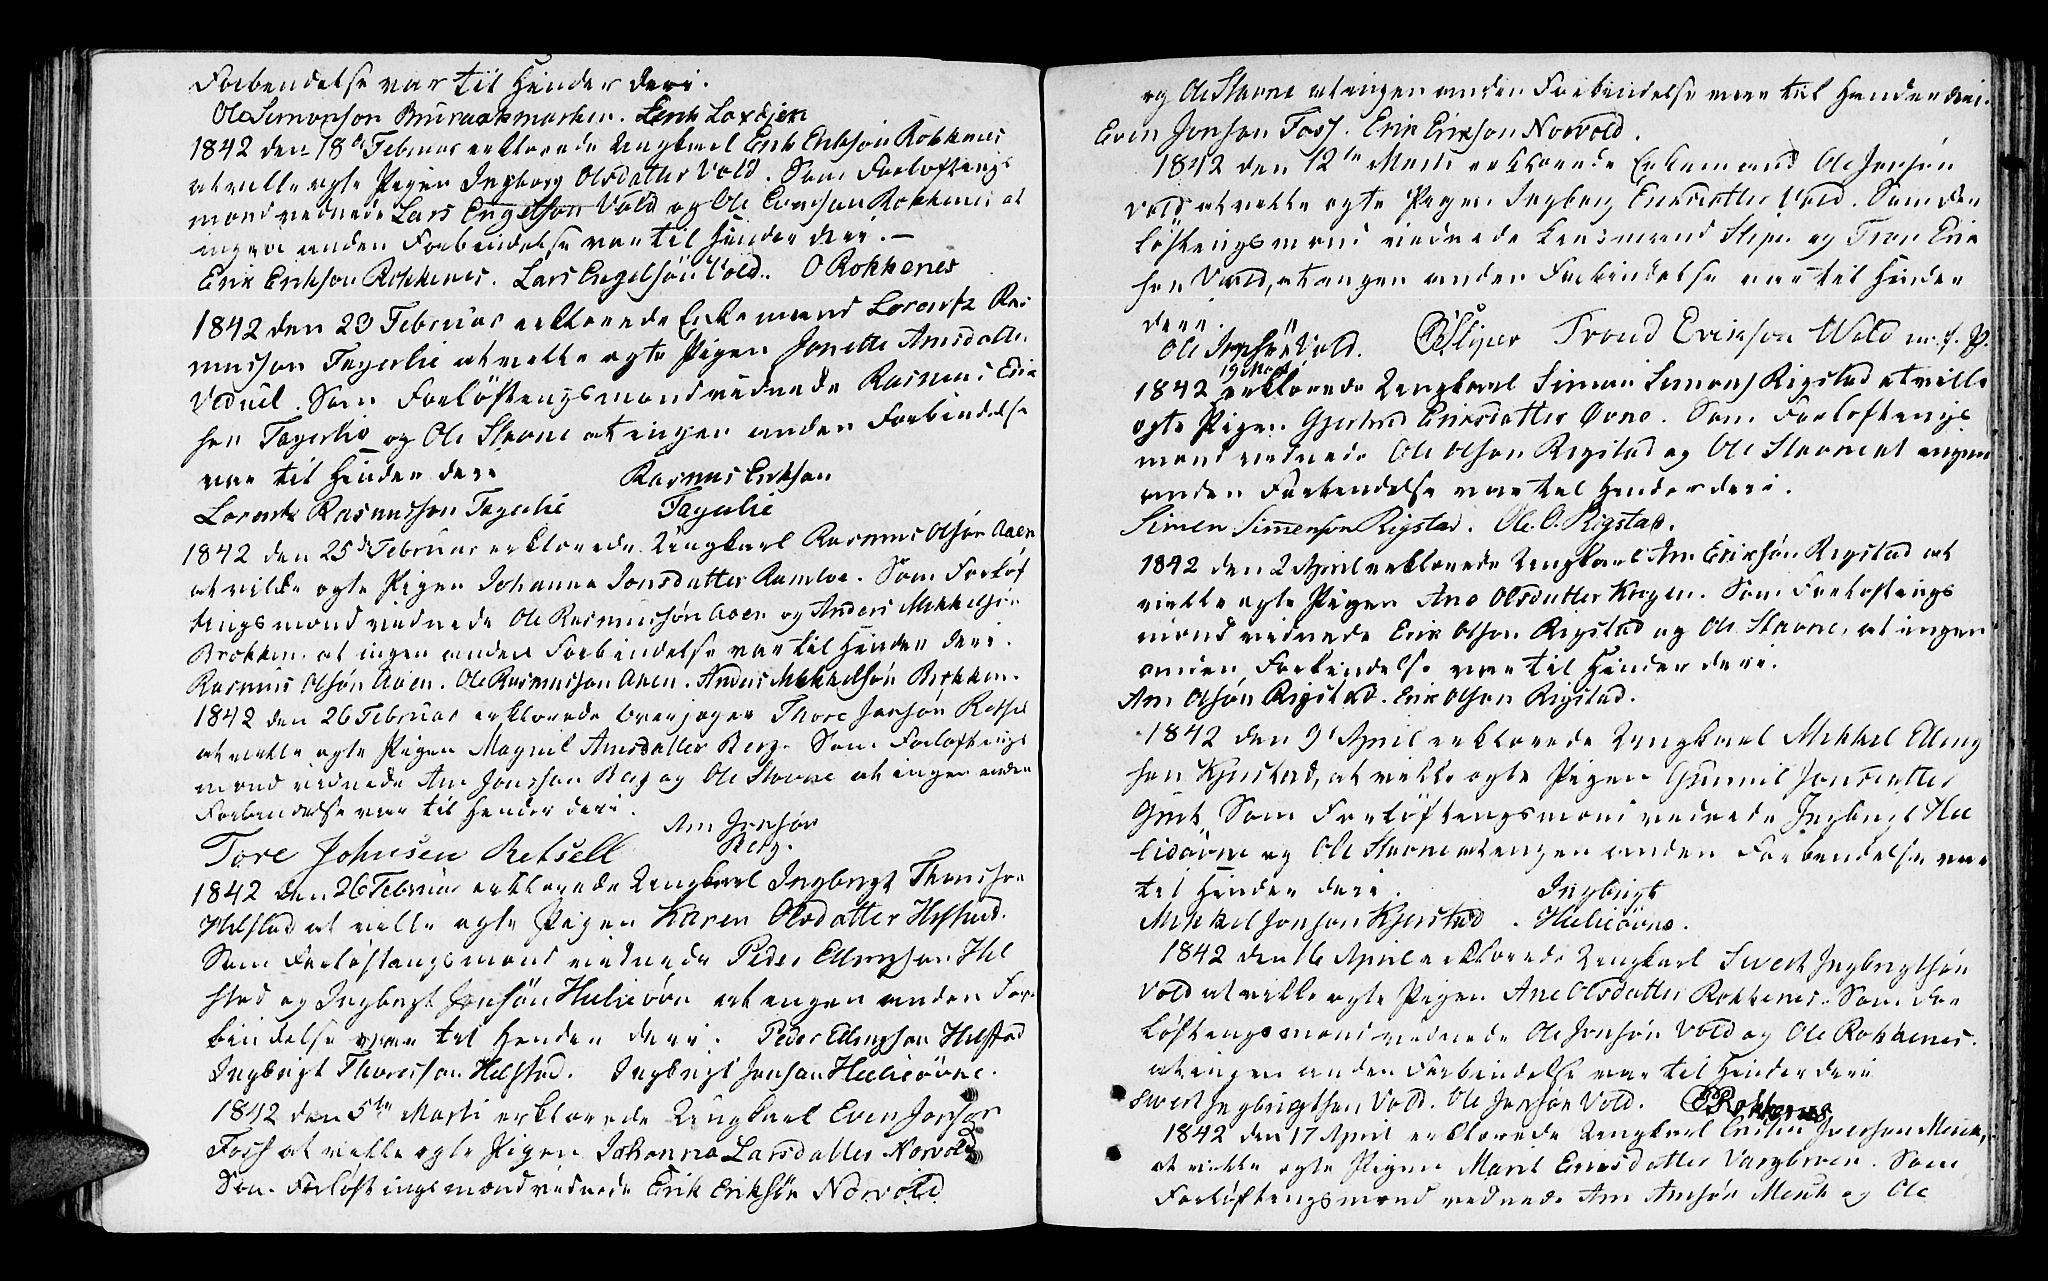 Forbendelse var til Hinder deri.
Ole Simonson
1842 den 18de Februar erklærede Ungkarl Erik Erikson Rokkenes
at ville egte Pigen Ingborg Olsdatter Vold. Som Forloftings
mænd vidnede Lars Engelson Vold og Ole Evenson Rokkenes at
ingen anden Forbindelse var til Hinder deri.
Erik Erikson Rokkenes. Lars Engelsøn Vold. O Rokkenes
1842 den 23 Februar erklærede Enkemand Lorentz Ras
musson Fagerlie at ville egte Pigen Jonette Arnsdatter
Som Forløftengsmænd vidnede Rasmus Erik
son Fagerlie og Ole Stavne at ingen anden Forbindelse
var til Hinder deri Rasmus Erikson
Lorentz Rasmusson Fagerlie Fagerlie
1842 den 25de Februar erklærede Ungkarl Rasmus Olsøn Aaen
at ville egte Pigen Johanna Jonsdatter Ramloe. Som Forløf
tingsmænd vidnede Ole Rasmussøn Aaen og Anders Mikkelsøn
Brekken at ingen anden Forbindelse var til Hinder deri.
Rasmus Olsøn Aaen. Ole Rasmusson Aaen. Anders Mikkelsøn Brekken.
1842 den 26 Februar erklærede Thore Jonsøn Retsel
at ville egte Pigen Magnil Arnsdatter Berg. Som Forloftings
mænd vidnede Arn Jonsson Berg og Ole Stavne at ingen anden
Forbendelse var til Hinder deri.
Arn Jonsøn
Tore Johnsen Retsell Berg.
1842 den 26 Februar erklærede Ungkarl Ingbrigt Thorsson
Helstad at ville egte Pigen Karen Olsdatter Helstad.
Som Forløftengsmænd vidnede Peder Ellingson Hel
stad og Ingbrigt Jonsøn Hulieøvn at engen anden For
bindelse var tel Hender deri. Peder Ellingson Helstad
Ingbrigt Thoresson Helstad. Ingbrigt Jonson Hulieøvne.
1842 den 5te Marti erklærede Ungkarl Even Jonson
Foss at ville egte Pigen Johanna Larsdatter Norvold
Som Forløftingsmænd vidnede Erik Eriksøn Norvold
og Ole Stavne at engen anden Forbindelse var til Hinder deri.
Even Jonson Foss. Erik Erikson Norvold.
1842 den 12te Marti erklærede Enkemand Ole Jonsøn
Vold at ville egte Pigen Ingborg Eriksdatter Vold. Som For
løftengsmænd vidnede Lensmand Sliper og Tron Erik
son Vold, at engen anden Forbindelse var til Hinder
deri.
Ole Jonsøn Vold. Sliper Trond Erikson Wold m. f. P.
19 Marti
1842 erklærede Ungkarl Simon Simons Rigstad at ville
egte Pigen Gjertrud Eriksdatter Øvne. Som Forloftengs
mænd vidnede Ole Olson Rigstad og Ole Stavne at engen
anden Forbendelse var tel Hinder deri.
Simen Simenson Rigstad. Ole. O. Rigstad.
1842 den 2 April erklærede Ungkarl Arn Eriksøn Rigstad at
ville egte Pigen Ane Olsdatter Krogen. Som Forloftings
mænd vidnede Erik Olson Rigstad og Ole Stavne, at ingen
anden Forbindelse var til Hinder deri.
Arn Olsøn Rigstad. Erik Olson Rigstad.
1842 den 9de April erklærede Ungkarl Mikkel Elling
son Kjerstad, at ville egte Pigen Gunnil Jonsdatter
Som Forløftengsmænd vidnede Ingbrigt Hu
lieøvne og Ole Stavne at engen anden Forbendelse var
tel Hinder deri. Ingbrigt
Mikkel Jonson Kjerstad. Hulieøvne.
1842 den 16 April erklærede Ungkarl Sivert Ingbrigtsøn
Vold at ville egte Pigen Ane Olsdatter Rokkenes. Som For
løftengsmænd vidnede Ole Jonsøn Vold og Ole Rokkenes.
at ingen anden Forbindelse var til Hinder deri
Sivert Ingbrigtson Vold. Ole Jonsøn Vold. Rokkenes
1842 den 17 April erklærede Ungkarl Iverson
at ville egte Pigen Marit Som
Forløftengsmænd vidnede Arn Arnsøn og Ole